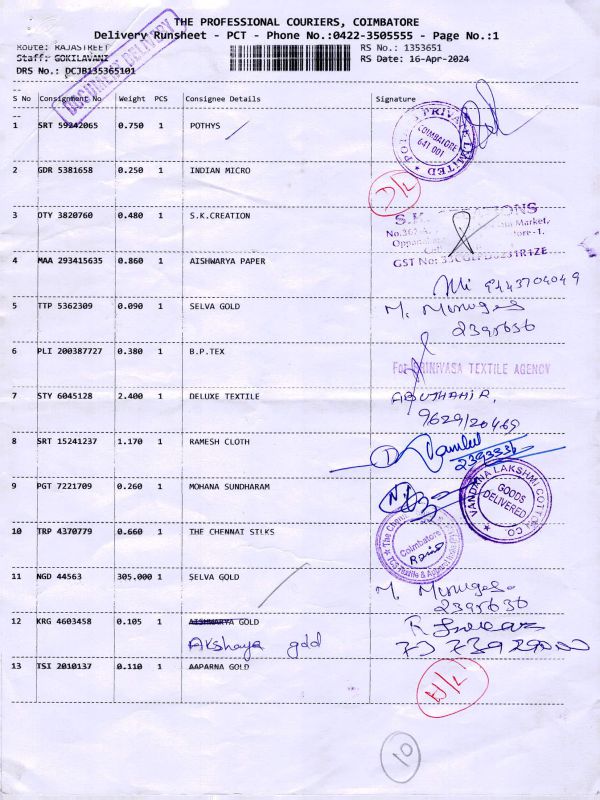 THE PROFESSIONAL COURIERS, COIMBATORE
Delivery Runsheet - PCT - Phone No.:0422-3505555 - Page No.:1
Route: RAJASTREET
RS No.: 1353651
Staff: GOKILAVANI
RS Date: 16-Apr-2024
DRS No.: DCJB135365101
DOCUMENT DELIVERY
S No Consignment No Weight PCS Consignee Details Signature
1 SRT 59242065 0.750 1 POTHYS
PRIVATE LIMITED
COIMBATORE
641 001
2 GDR 5381658 0.250 1 INDIAN MICRO
D/L
3 OTY 3820760 0.480 1 S.K.CREATION
4 MAA 293415635 0.860 1 AISHWARYA PAPER
9443704049
5 TTP 5362309 0.090 1 SELVA GOLD
M. Muruges
2395636
6 PLI 200387727 0.380 1 B.P.TEX
For SRINIVASA TEXTILE AGENCY
7 STY 6045128 2.400 1 DELUXE TEXTILE
ABUTHAHIR,
9629120469
8 SRT 15241237 1.170 1 RAMESH CLOTH
9 PGT 7221709 0.260 1 MOHANA SUNDHARAM
VANDANA LAKSHMI COTTON CO.
GOODS
DELIVERED
10 TRP 4370779 0.660 1 THE CHENNAI SILKS
Coimbatore
11 NGD 44563 305.000 1 SELVA GOLD
M. Muruges
2395636
12 KRG 4603458 0.105 1 AISHWARYA GOLD
Akshaya gdd
13 TSI 2010137 0.110 1 AAPARNA GOLD
10